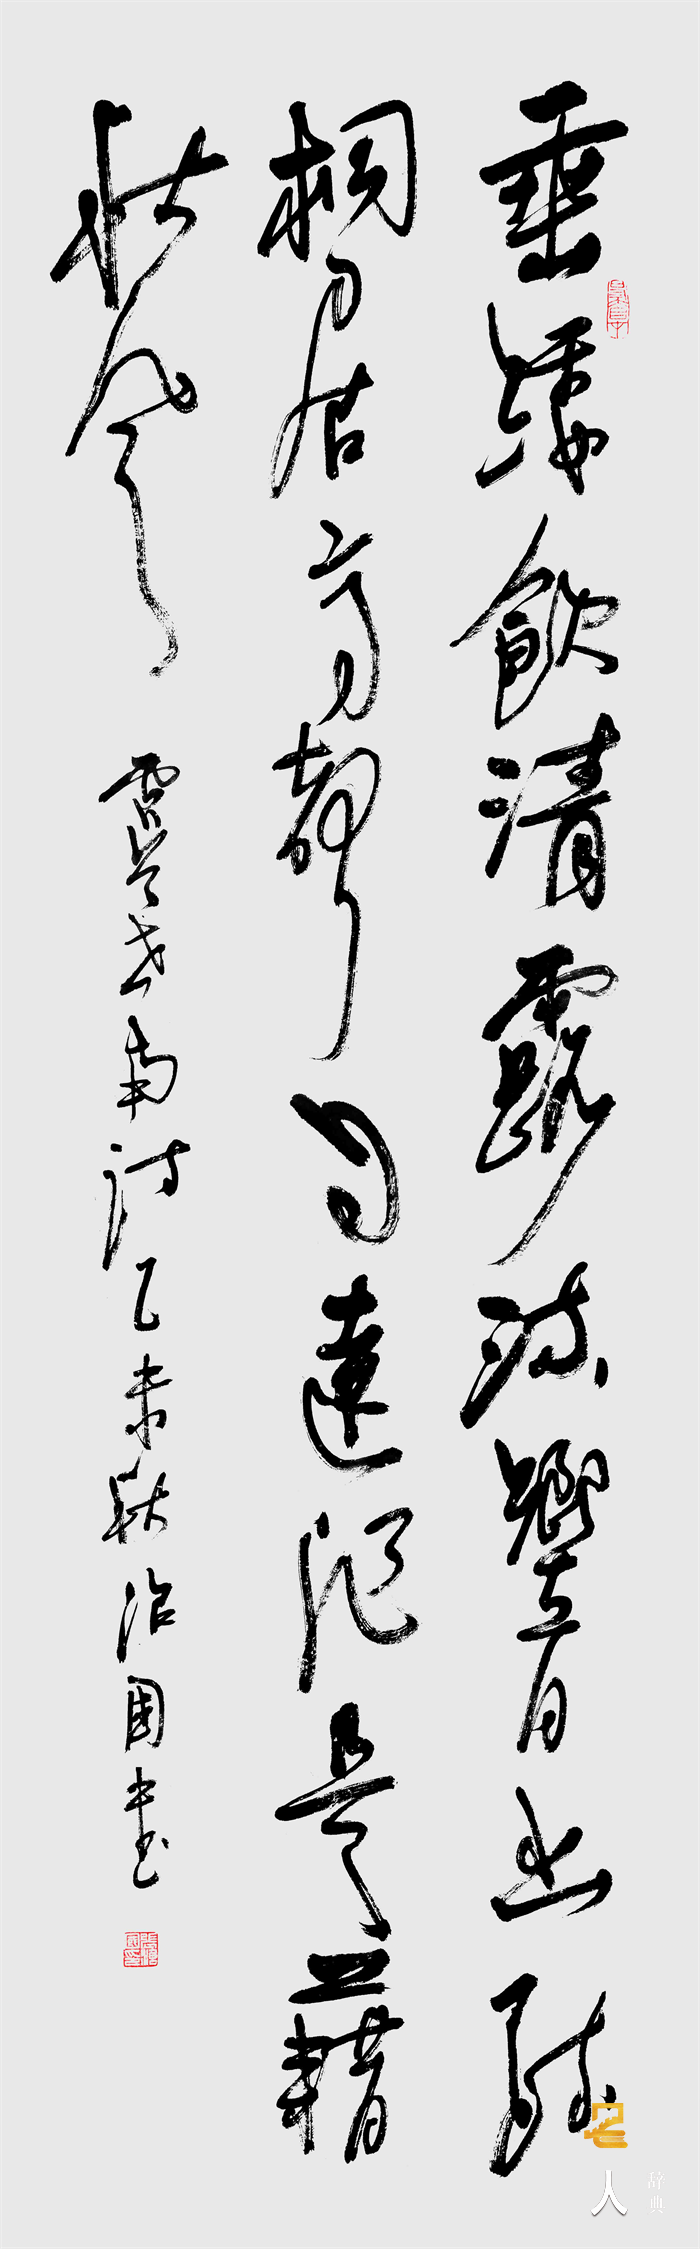 垂緌飲清露流響出疏
桐居高聲自遠非是藉
秋風 虞世南詩乙未秋治國書
名人辞典